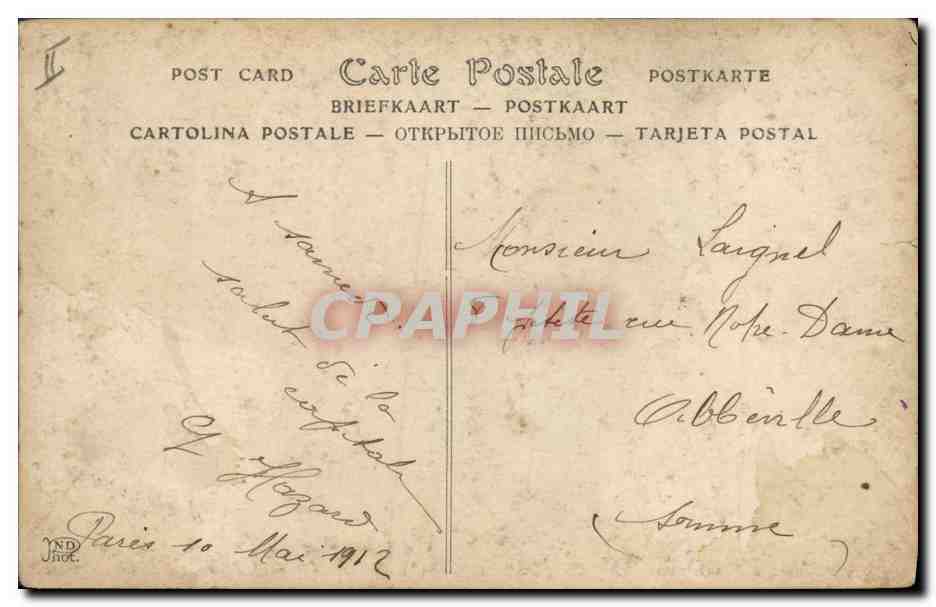 II
POST CARD Carte Postale POSTKARTE
BRIEFKAART — POSTKAART
CARTOLINA POSTALE — ОТКРЫТОЕ ПИСЬМО — TARJETA POSTAL
A samedi.
salut de la
capitale
G Hazard
Paris 10 Mai 1912
ND
Phot.
Monsieur Laignel
petite rue Notre-Dame
Abbéville
(Somme)
CPAPHIL